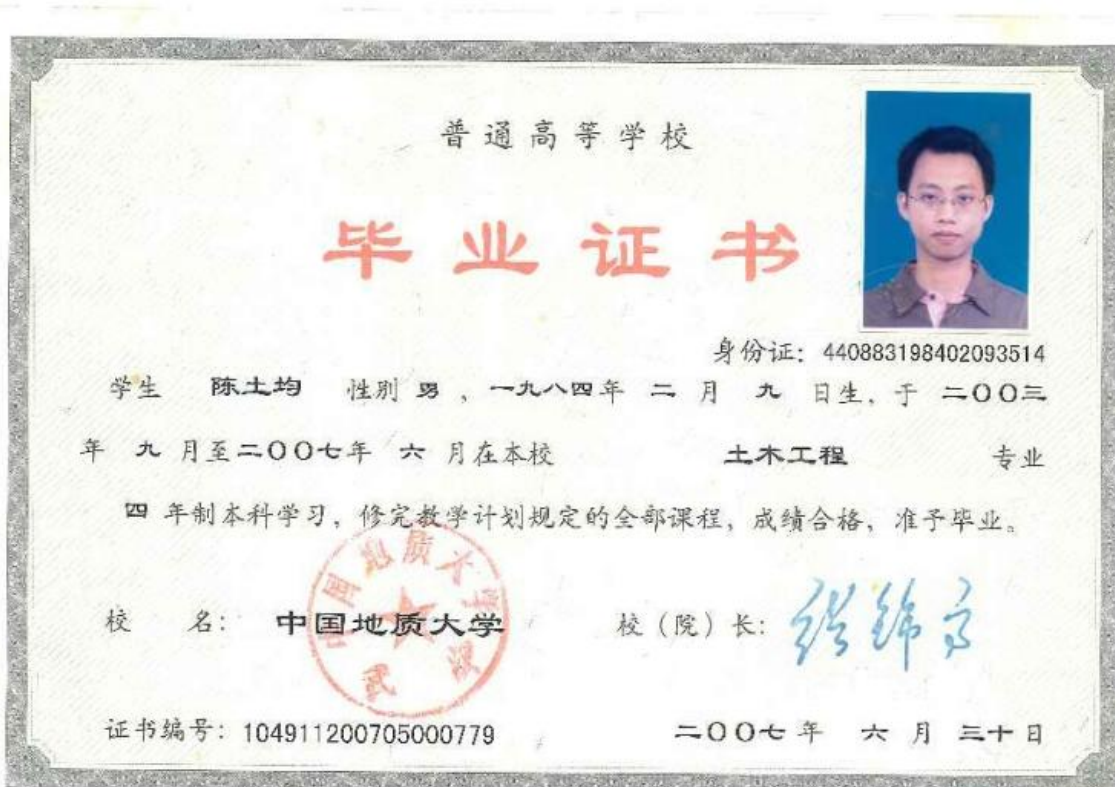 普通高等学校
毕业证书
身份证：440883198402093514
学生 陈土均 性别 男 ，一九八四年 二 月 九 日生，于 二〇〇三
年 九 月至二〇〇七年 六 月在本校 土木工程 专业
四 年制本科学习，修完教学计划规定的全部课程，成绩合格，准予毕业。
中国地质大学
武汉
校 名： 中国地质大学 校（院）长： 张锦高
证书编号：104911200705000779 二〇〇七年 六 月 三十日